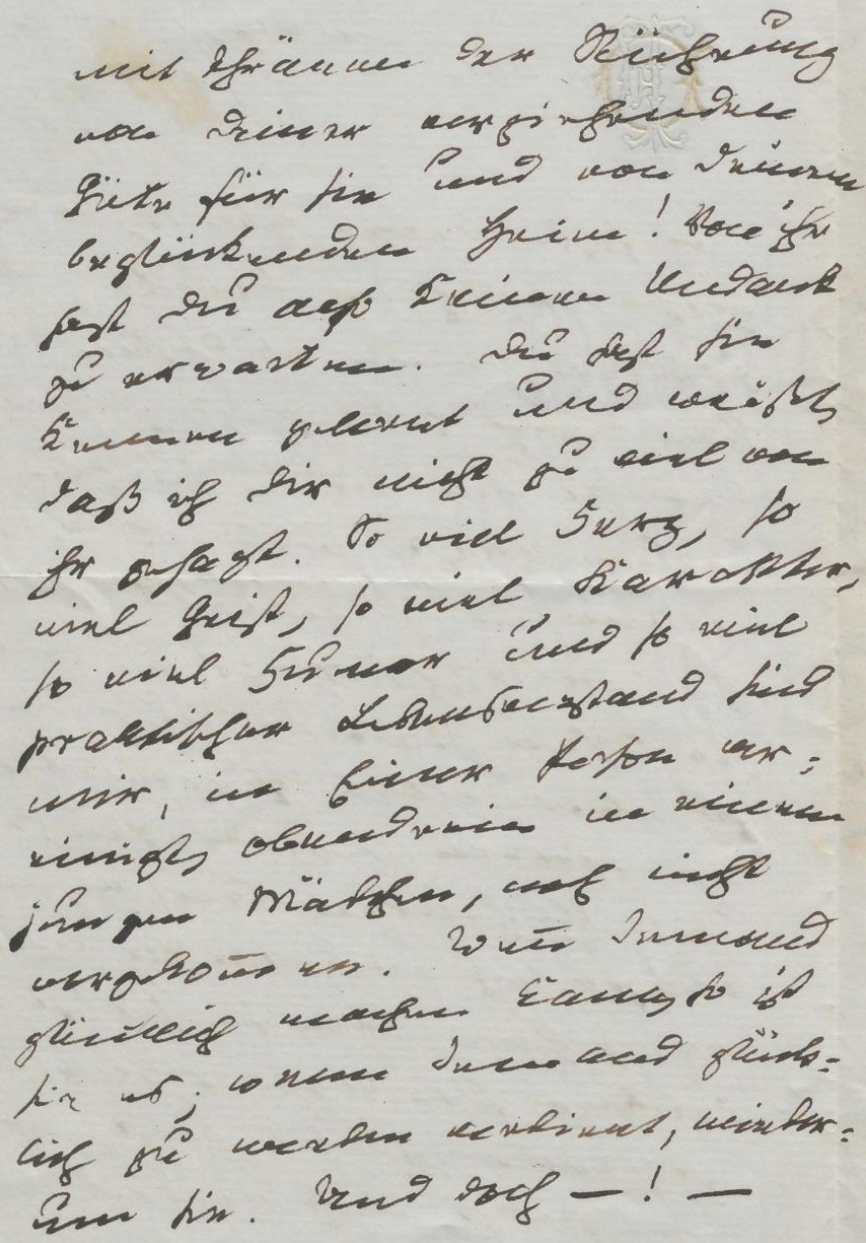 mit Thränen der Rührung
von Deiner verzeihenden
Güte für sie und von Deinem
beglückenden Heim! Von ihr
hast Du auch keinen Undank
zu erwarten. Du hast sie
kennen gelernt und weißt,
daß ich Dir nicht zu viel von
ihr gesagt. So viel Herz, so
viel Geist, so viel Karakter,
so viel Humor und so viel
praktischer Lebensverstand sind
mir, in Einer Person ver-
einigt, obendrein in einem
jungen Mädchen, noch nicht
vorgekom̄en. Wen̄ Jemand
glücklich machen kann, so ist
sie es; wenn Jemand glück-
lich zu werden verdient, wieder-
um sie. Und doch — ! —